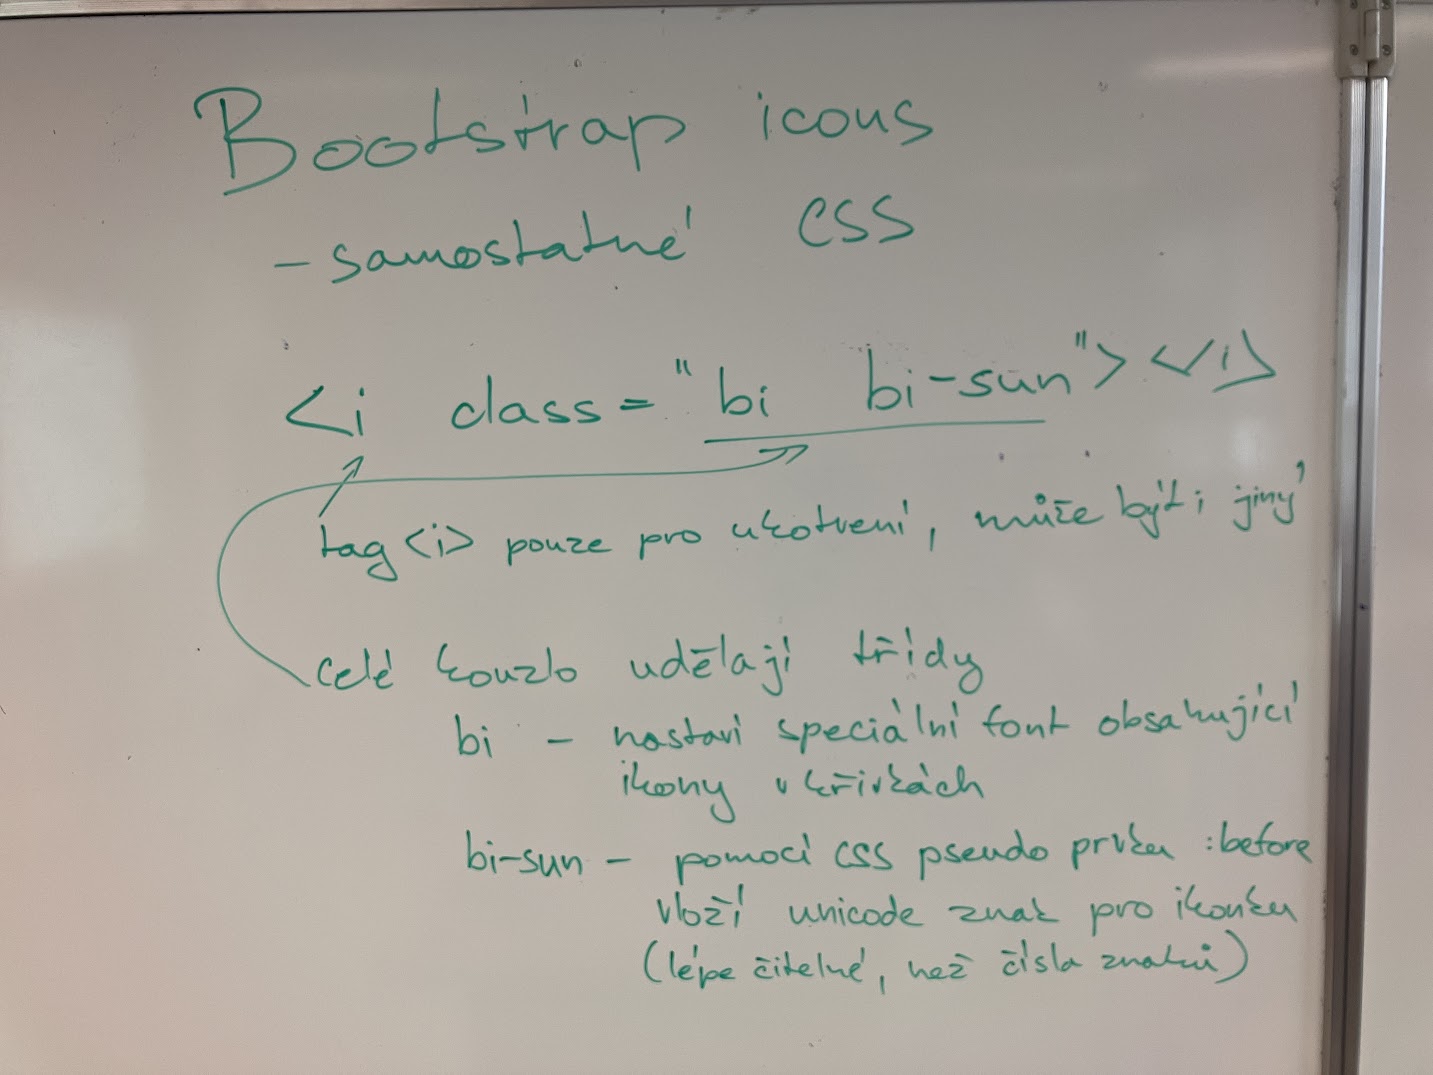 Bootstrap icons
- samostatné CSS
<i class="bi bi-sun"></i>
tag <i> pouze pro ukotvení, může být i jiný
celé kouzlo udělají třídy
bi - nastaví speciální font obsahující
ikony v křivkách
bi-sun - pomocí CSS pseudo prvku :before
vloží unicode znak pro ikonku
(lépe čitelné, než čísla znaků)